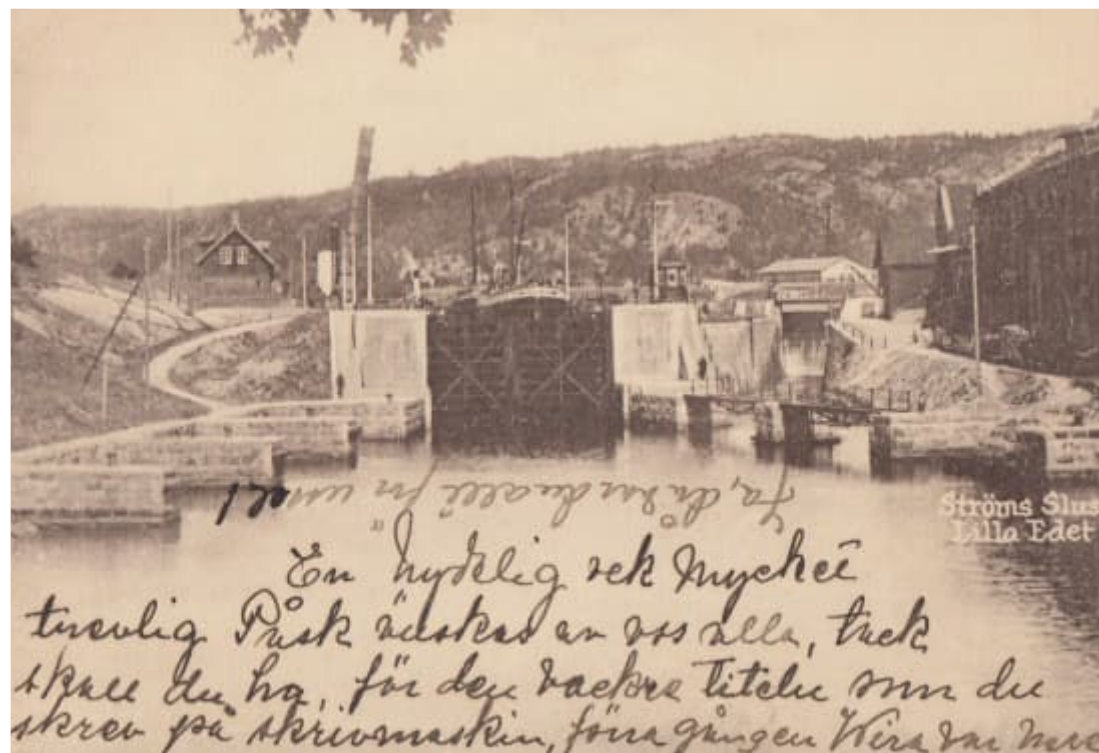 Ströms Slus
Lilla Edet
En nydelig ock mycket
trevlig Påsk önskas av oss alla, tack
skall du ha, för den vackra titeln som du
skrev på skrivmaskin, förra gången Wira var